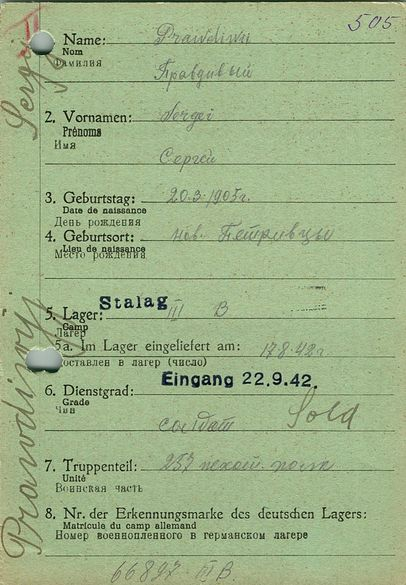 505
Name: Prawdiwyi
Nom
Фамилия
Правдивый
2. Vornamen: Sergei
Prénoms
Имя
Сергей
3. Geburtstag: 20.3.1905г.
Date de naissance
День рождения
4. Geburtsort: нов. Петривцы
Lieu de naissance
Место рождения
5. Lager: Stalag III B
Camp
Лагерь
5a. Im Lager eingeliefert am: 17.8.42г
доставлен в лагерь (число)
Eingang 22.9.42.
6. Dienstgrad:
Grade
Чин
солдат Sold
7. Truppenteil: 257 пехот. полк
Unité
Воинская часть
8. Nr. der Erkennungsmarke des deutschen Lagers:
Matricule du camp allemand
Номер военнопленного в германском лагере
66897 - III B
Prawdiwyj Sergej